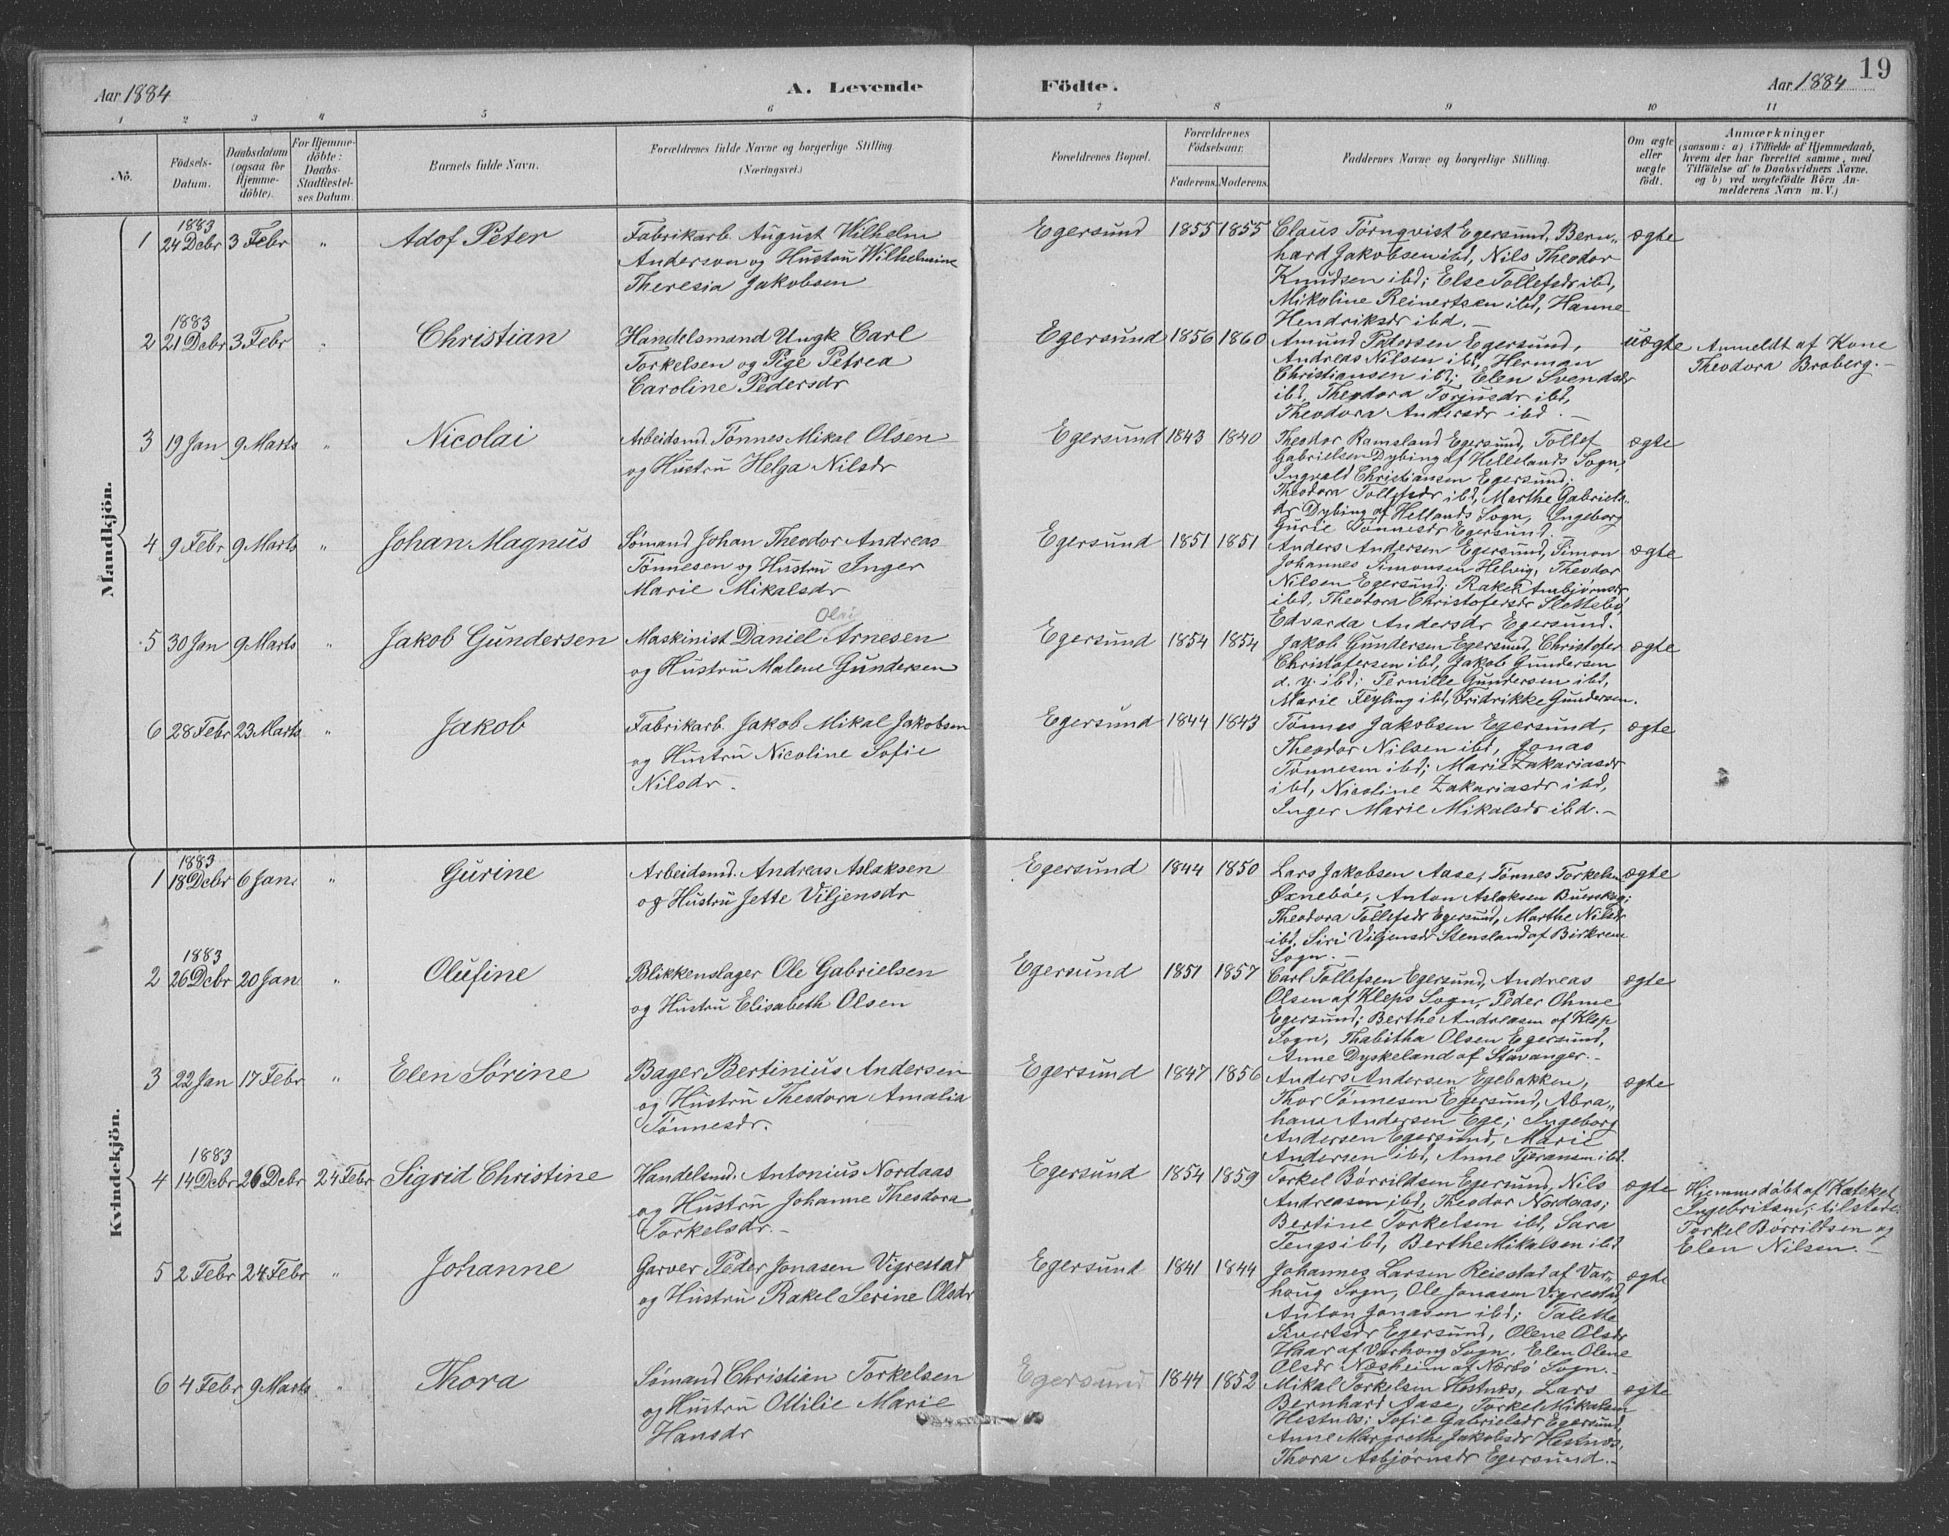 19
Aar 1884 A. Levende Födte. Aar 1884
1 2 3 4 5 6 7 8 9 10 11
No. Födsels-Datum. Daabsdatum (ogsaa for Hjemmedöbte). For Hjemmedöbte: Daabs-Stadfæstelses Datum. Barnets fulde Navn. Forældrenes fulde Navne og borgerlige Stilling. (Næringsvei.) Forældrenes Bopæl. Forældrenes Födselsaar. Faderens. Moderens. Faddernes Navne og borgerlige Stilling. Om ægte eller uægte födt. Anmærkninger (saasom: a) i Tilfælde af Hjemmedaab, hvem der har forrettet samme, med Tilföielse af to Daabsvidners Navne, og b) ved uægtefödte Börn Anmelderens Navn m. V.)
Mandkjön.
1 1883 24 Debr 3 Febr " Adof Peter
Fabrikarb. August Wilhelm
Anderson og Hustru Wilhelmine
Theresia Jakobsen
Egersund 1855 1855
Claus Tørnqvist Egersund, Bern-
hard Jakobsen ibd, Nils Theodor
Knudsen ibd; Else Tollefsdr ibd,
Mikoline Reinertsen ibd, Hanne
Hendriksdr ibd.-
ægte
2 1883 21 Debr 3 Febr " Christian
Handelsmand Ungk Carl
Torkelsen og Pige Petrea
Caroline Pedersdr
Egersund 1856 1860
Amund Pedersen Egersund,
Andreas Nilsen ibd, Herman
Christiansen ibd; Elen Svendsdr
ibd, Theodora Torjusdr ibd,
Theodora Andersdr ibd.-
uægte
Anmeldt af Kone
Theodora Broberg.-
3 19 Jan 9 Marts " Nicolai
Arbeidsmd. Tønnes Mikal Olsen
og Hustru Helga Nilsdr
Egersund 1843 1840
Theodor Ramsland Egersund, Tollef
Gabrielsen Dybing af Hellelands Sogn,
Ingvald Christiansen Egersund;
Theodora Tollefsdr ibd, Marthe Gabriels-
dr Dybing af Hellands Sogn, Ingeborg
Gurie Tønnesdr Egersund.
ægte
4 9 Febr 9 Marts " Johan Magnus
Sømand Johan Theodor Andreas
Tønnesen og Hustru Inger
Marie Mikalsdr
Egersund 1851 1851
Anders Andersen Egersund, Simon
Johannes Simonsen Helvig, Theodor
Nilsen Egersund; Rakel Asbjørnsdr
ibd, Theodora Christofersdr Slettebø
Edvarda Andersdr Egersund.
ægte
5 30 Jan 9 Marts " Jakob Gundersen
Olai
Maskinist Daniel Arnesen
og Hustru Malene Gundersen
Egersund 1854 1854
Jakob Gundersen Egersund, Christofer
Christofersen ibd, Jakob Gundersen
d. y. ibd; Pernille Gundersen ibd,
Marie Feyling ibd, Fridrikke Gundersen.
ægte
6 28 Febr 23 Marts " Jakob
Fabrikarb. Jakob Mikal Jakobsen
og Hustru Nicoline Sofie
Nilsdr.
Egersund 1844 1843
Tønnes Jakobsen Egersund,
Theodor Nilsen ibd, Jonas
Tønnesen ibd; Marie Zakariasdr
ibd, Nicoline Zakariasdr ibd,
Inger Marie Mikalsdr ibd.-
ægte
Kvindekjön.
1 1883 18 Debr 6 Jan. " Gurine
Arbeidsmd. Andreas Aslaksen
og Hustru Jette Viljensdr
Egersund 1844 1850
Lars Jakobsen Aase, Tønnes Torkelsen
Øxnebøe, Anton Aslaksen Buerskog;
Theodora Tollefsdr Egersund, Marthe Nilsdr
ibd, Siri Viljensdr Stensland af Birkrem
Sogn.-
ægte
2 1883 26 Debr 20 Jan " Olufine
Blikkenslager Ole Gabrielsen
og Hustru Elisabeth Olsen
Egersund 1851 1857
Carl Tollefsen Egersund, Andreas
Olsen af Kleps Sogn, Peder Ohme
Egersund; Berthe Andreasen af Klep
Sogn, Thabitha Olsen Egersund,
Anne Dyskeland af Stavanger.-
ægte
3 22 Jan 17 Febr " Elen Sørine
Bager Bertinius Andersen
og Hustru Theodora Amalia
Tønnesdr.
Egersund 1847 1856
Anders Andersen Egebakken,
Thor Tønnesen Egersund, Abra-
ham Andersen Ege; Ingeborg
Andersen Egersund, Marie
Andersen ibd, Anne Tjeransen ibd.
ægte
4 1883 14 Debr 26 Debr 24 Febr Sigrid Christine
Handelsmd. Antonius Nordaas
og Hustru Johanne Theodora
Torkelsdr.-
Egersund 1854 1859
Torkel Børrildsen Egersund, Nils
Andreasen ibd, Theodor Nordaas;
Bertine Torkelsen ibd, Sara
Tengs ibd, Berthe Mikalsen ibd
ægte
Hjemmedøbt af Kateket
Ingebritsen; tilstede
Torkel Børrildsen og
Elen Nilsen.-
5 2 Febr 24 Febr " Johanne
Garver Peder Jonasen Vigrestad
og Hustru Rakel Serine Olsdr
Egersund 1841 1844
Johannes Larsen Reiestad af Var-
houg Sogn, Ole Jonasen Vigrestad,
Anton Jonasen ibd; Talette
Sivertsdr Egersund, Olene Olsdr
Haar af Varhoug Sogn, Elen Olene
Olsdr Næsheim af Nærbø Sogn.-
ægte
6 4 Febr 9 Marts " Thora
Sømand Christian Torkelsen
og Hustru Ottilie Marie
Hansdr
Egersund 1844 1852
Mikal Torkelsen Hestnes, Lars
Bernhard Aase, Torkel Mikalsen
Hestnes; Sofie Gabrielsdr Egersund,
Anne Margrethe Jakobsdr Hestnes,
Thora Asbjørnsdr Egersund.-
ægte